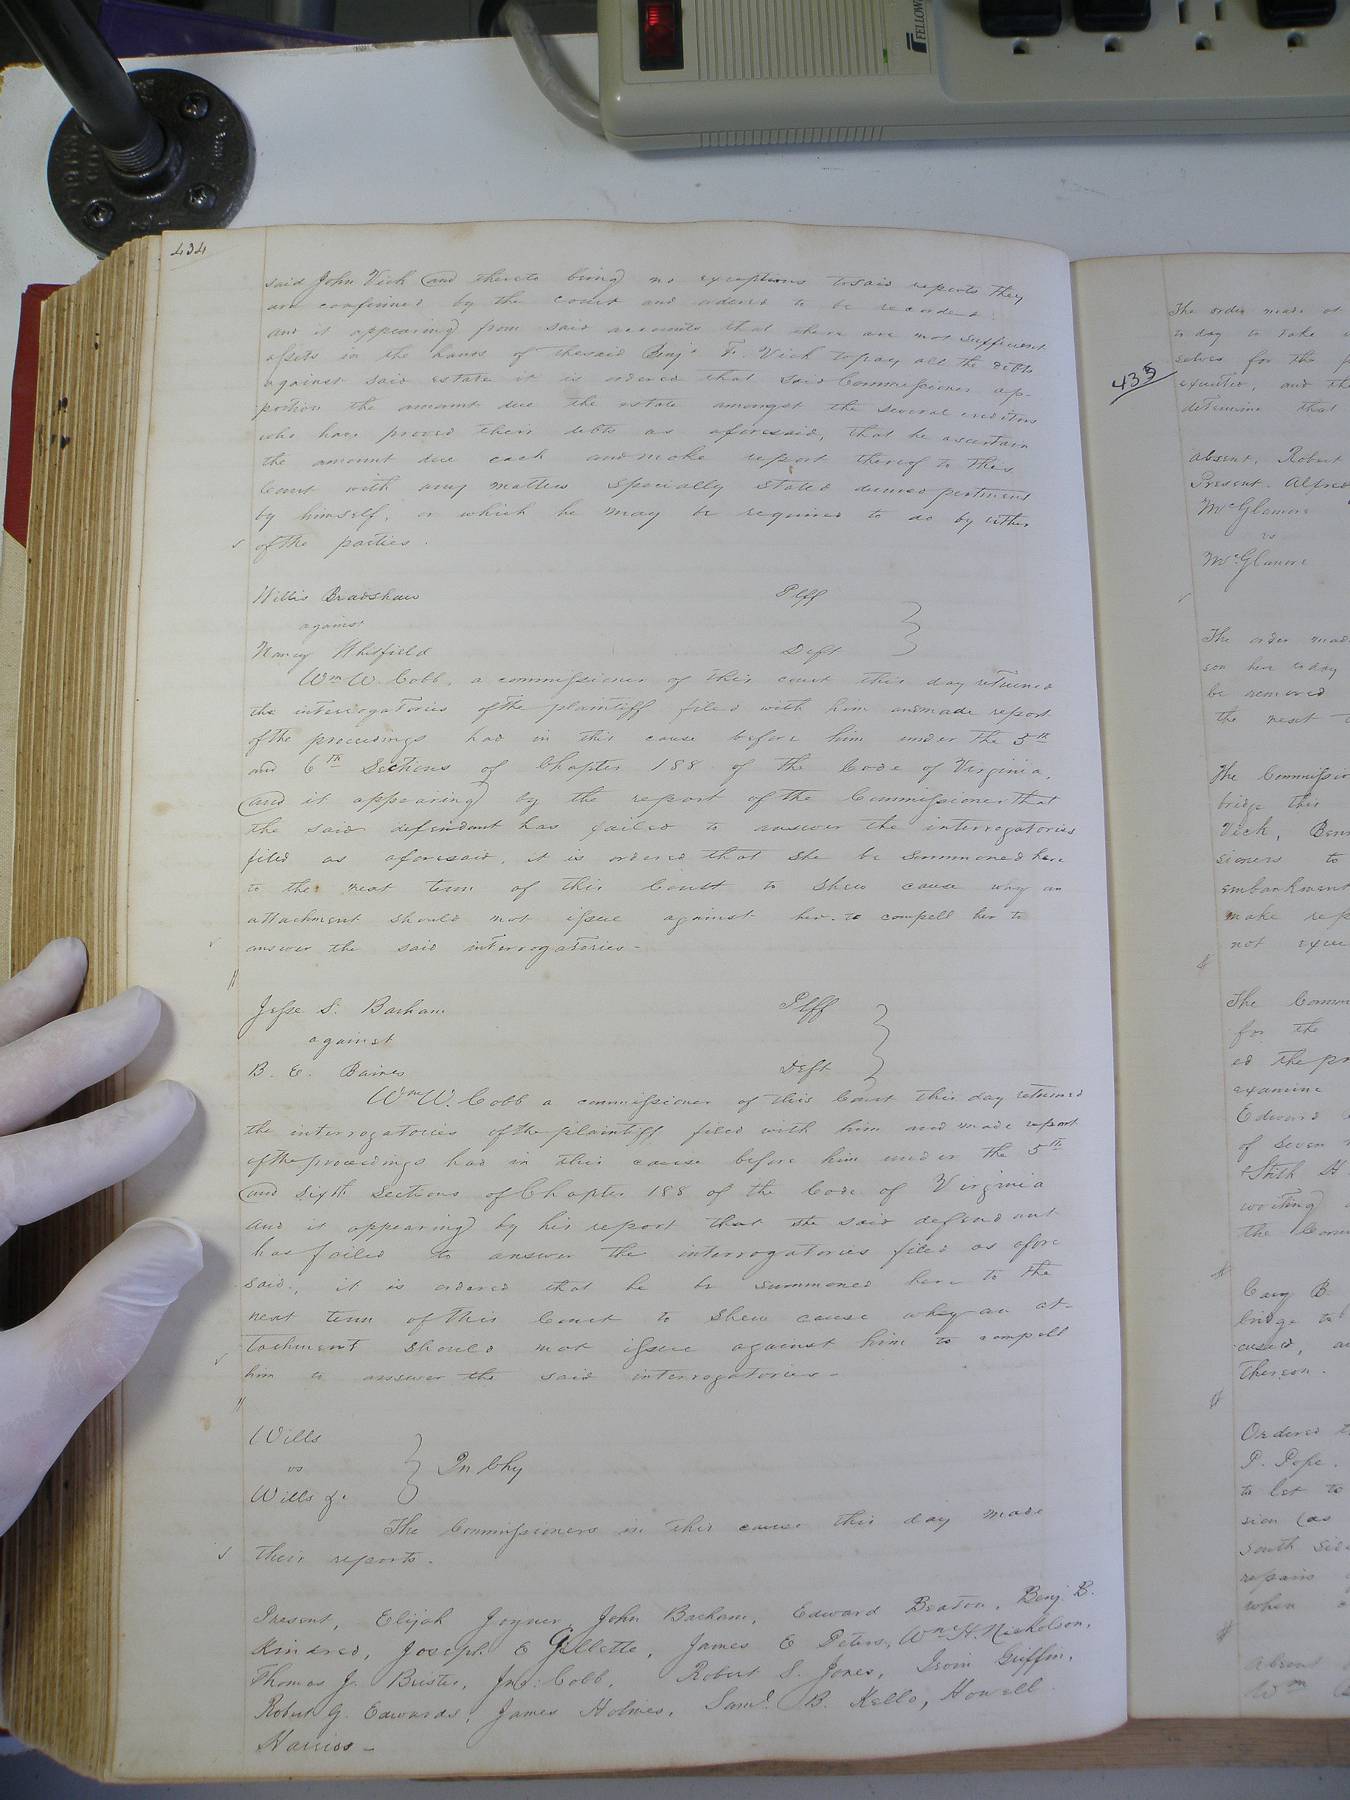 434
said John Vick and thereto being no exceptions to said reports they
are confirmed by the court and ordered to be recorded:
and it appearing from said accounts that there are not sufficient
assets in the hands of the said Benj: F. Vick to pay all the debts
against said estate it is ordered that said Commissioner ap-
portion the amount due the estate amongst the several creditors
who have proved their debts as aforesaid, that he ascertain
the amount due each and make report thereof to this
Court with any matters specially stated deemed pertinent
by himself, or which he may be required to do by either
of the parties.
Willis Bradshaw Plff
against
Nancy Whitfield Deft
Wm W. Cobb, a commissioner of this court this day returned
the interrogatories of the plaintiff filed with him and made report
of the proceedings had in this cause before him under the 5th
and 6th Sections of Chapter 188 of the Code of Virginia,
and it appearing by the report of the Commissioner that
the said defendant has failed to answer the interrogatories
filed as aforesaid, it is ordered that she be summoned here
to the next term of this Court to shew cause why an
attachment should not issue against her to compell her to
answer the said interrogatories -
Jesse S. Barham Plff
against
B. E. Baines Deft
Wm W. Cobb a commissioner of this Court this day returned
the interrogatories of the plaintiff filed with him and made report
of the proceedings had in this cause before him under the 5th
and sixth sections of Chapter 188 of the Code of Virginia
and it appearing by his report that the said defendant
has failed to answer the interrogatories filed as afore
said, it is ordered that he be summoned here to the
next term of this Court to shew cause why an at-
tachment should not issue against him to compell
him to answer the said interrogatories -
Wills
vs
Wills &c
In Chy
The Commissioners in this cause this day made
their reports.
Present, Elijah Joyner, John Barham, Edward Beaton, Benj. B.
Kindred, Joseph E Gillette, James E Peters, Wm H. Nicholson,
Thomas J. Brister, Jno: Cobb, Robert S. Jones, Irvin Griffin,
Robert G. Edwards, James Holmes, Saml. B. Kello, Howell
Harriss -
435
The order made at
to day to take
selves for the
executed, and the
determine that
absent, Robert
Present. Alfred
McGlamore
vs
McGlamore
The order made
son here to day
be removed
the next
The Commissio
bridge this
Vick, Benn
sioners to
embankment
make rep
not exec
The Comm
for the
ed the pr
examine
Edward
of seven
Stith H
writing
the Com
Cary B.
bridge to
thereon.
Ordered t
P. Pope.
to let to
sion (as
south side
repairs
when
absent
Wm
FELLOW